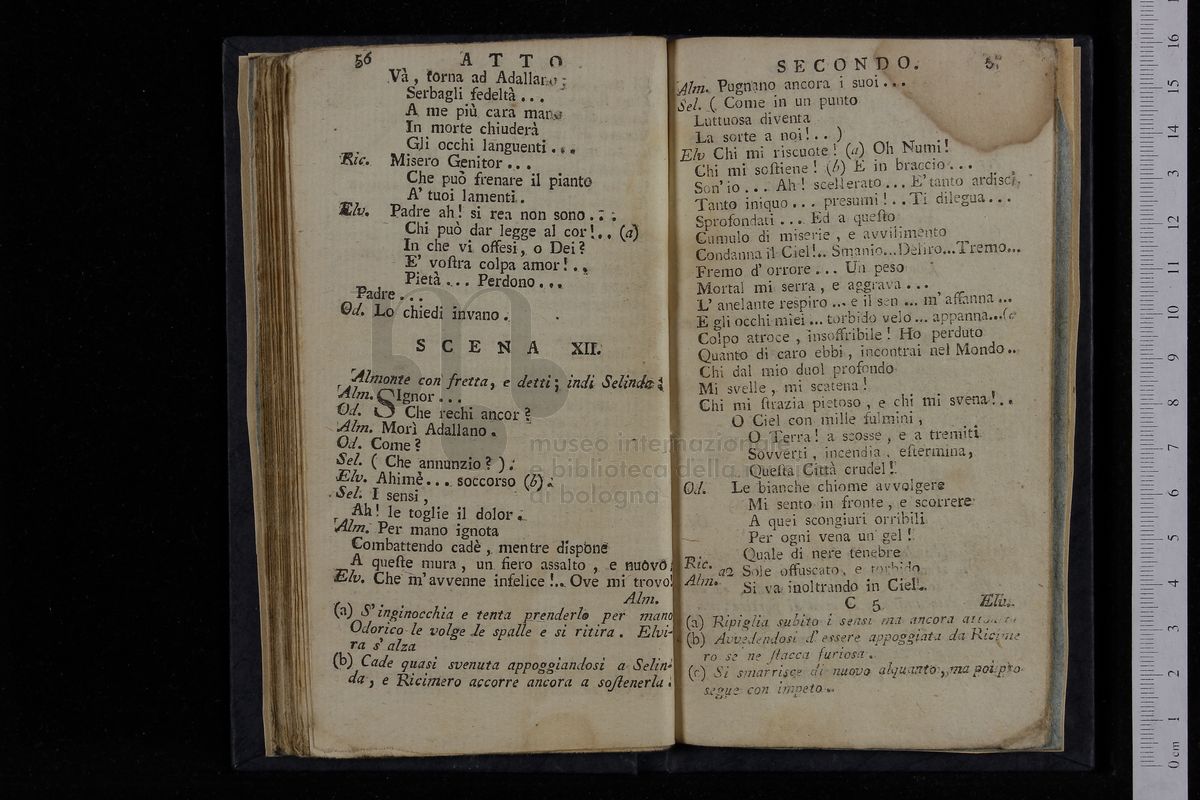 56 ATTO
Và, torna ad Adallano;
Serbagli fedeltà...
A me più cara mano
In morte chiuderà
Gli occhi languenti...
Ric. Misero Genitor...
Che può frenare il pianto
A' tuoi lamenti.
Elv. Padre ah! si rea non sono...
Chi può dar legge al cor!.. (a)
In che vi offesi, o Dei?
E' vostra colpa amor!..
Pietà... Perdono...
Padre...
Od. Lo chiedi invano.
SCENA XII.
Almonte con fretta, e detti; indi Selinda.
Alm. SIgnor...
Od. Che rechi ancor?
Alm. Morì Adallano.
Od. Come?
Sel. ( Che annunzio? ).
Elv. Ahimè... soccorso (b).
Sel. I sensi,
Ah! le toglie il dolor.
Alm. Per mano ignota
Combattendo cadè, mentre dispone
A queste mura, un fiero assalto, e nuovo.
Elv. Che m'avvenne infelice!.. Ove mi trovo!
Alm.
(a) S'inginocchia e tenta prenderlo per mano
Odorico le volge le spalle e si ritira. Elvi-
ra s'alza
(b) Cade quasi svenuta appoggiandosi a Selin-
da, e Ricimero accorre ancora a sostenerla.
SECONDO. 57
Alm. Pugnano ancora i suoi...
Sel. ( Come in un punto
Luttuosa diventa
La sorte a noi!.. )
Elv Chi mi riscuote! (a) Oh Numi!
Chi mi sostiene! (b) E in braccio...
Son' io... Ah! scellerato... E' tanto ardisci,
Tanto iniquo... presumi!.. Ti dilegua...
Sprofondati... Ed a questo
Cumulo di miserie, e avvilimento
Condanna il Ciel!.. Smanio...Deliro...Tremo...
Fremo d'orrore... Un peso
Mortal mi serra, e aggrava...
L'anelante respiro... e il sen... m'affanna...
E gli occhi miei... torbido velo... appanna...(c
Colpo atroce, insoffribile! Ho perduto
Quanto di caro ebbi, incontrai nel Mondo..
Chi dal mio duol profondo
Mi svelle, mi scatena!
Chi mi strazia pietoso, e chi mi svena!..
O Ciel con mille fulmini,
O Terra! a scosse, e a tremiti
Sovverti, incendia, estermina,
Questa Città crudel!
Od. Le bianche chiome avvolgere
Mi sento in fronte, e scorrere
A quei scongiuri orribili
Per ogni vena un gel!
Ric. Quale di nere tenebre
Alm. a2 Sole offuscato, e torbido
Si va inoltrando in Ciel!.
C 5 Elv.
(a) Ripiglia subito i sensi ma ancora
(b) Avvedendosi d'essere appoggiata da Ricime
ro se ne stacca furiosa.
(c) Si smarrisce di nuovo alquanto, ma poi pro
segue con impeto.
museo internazionale
e biblioteca della
di bologna